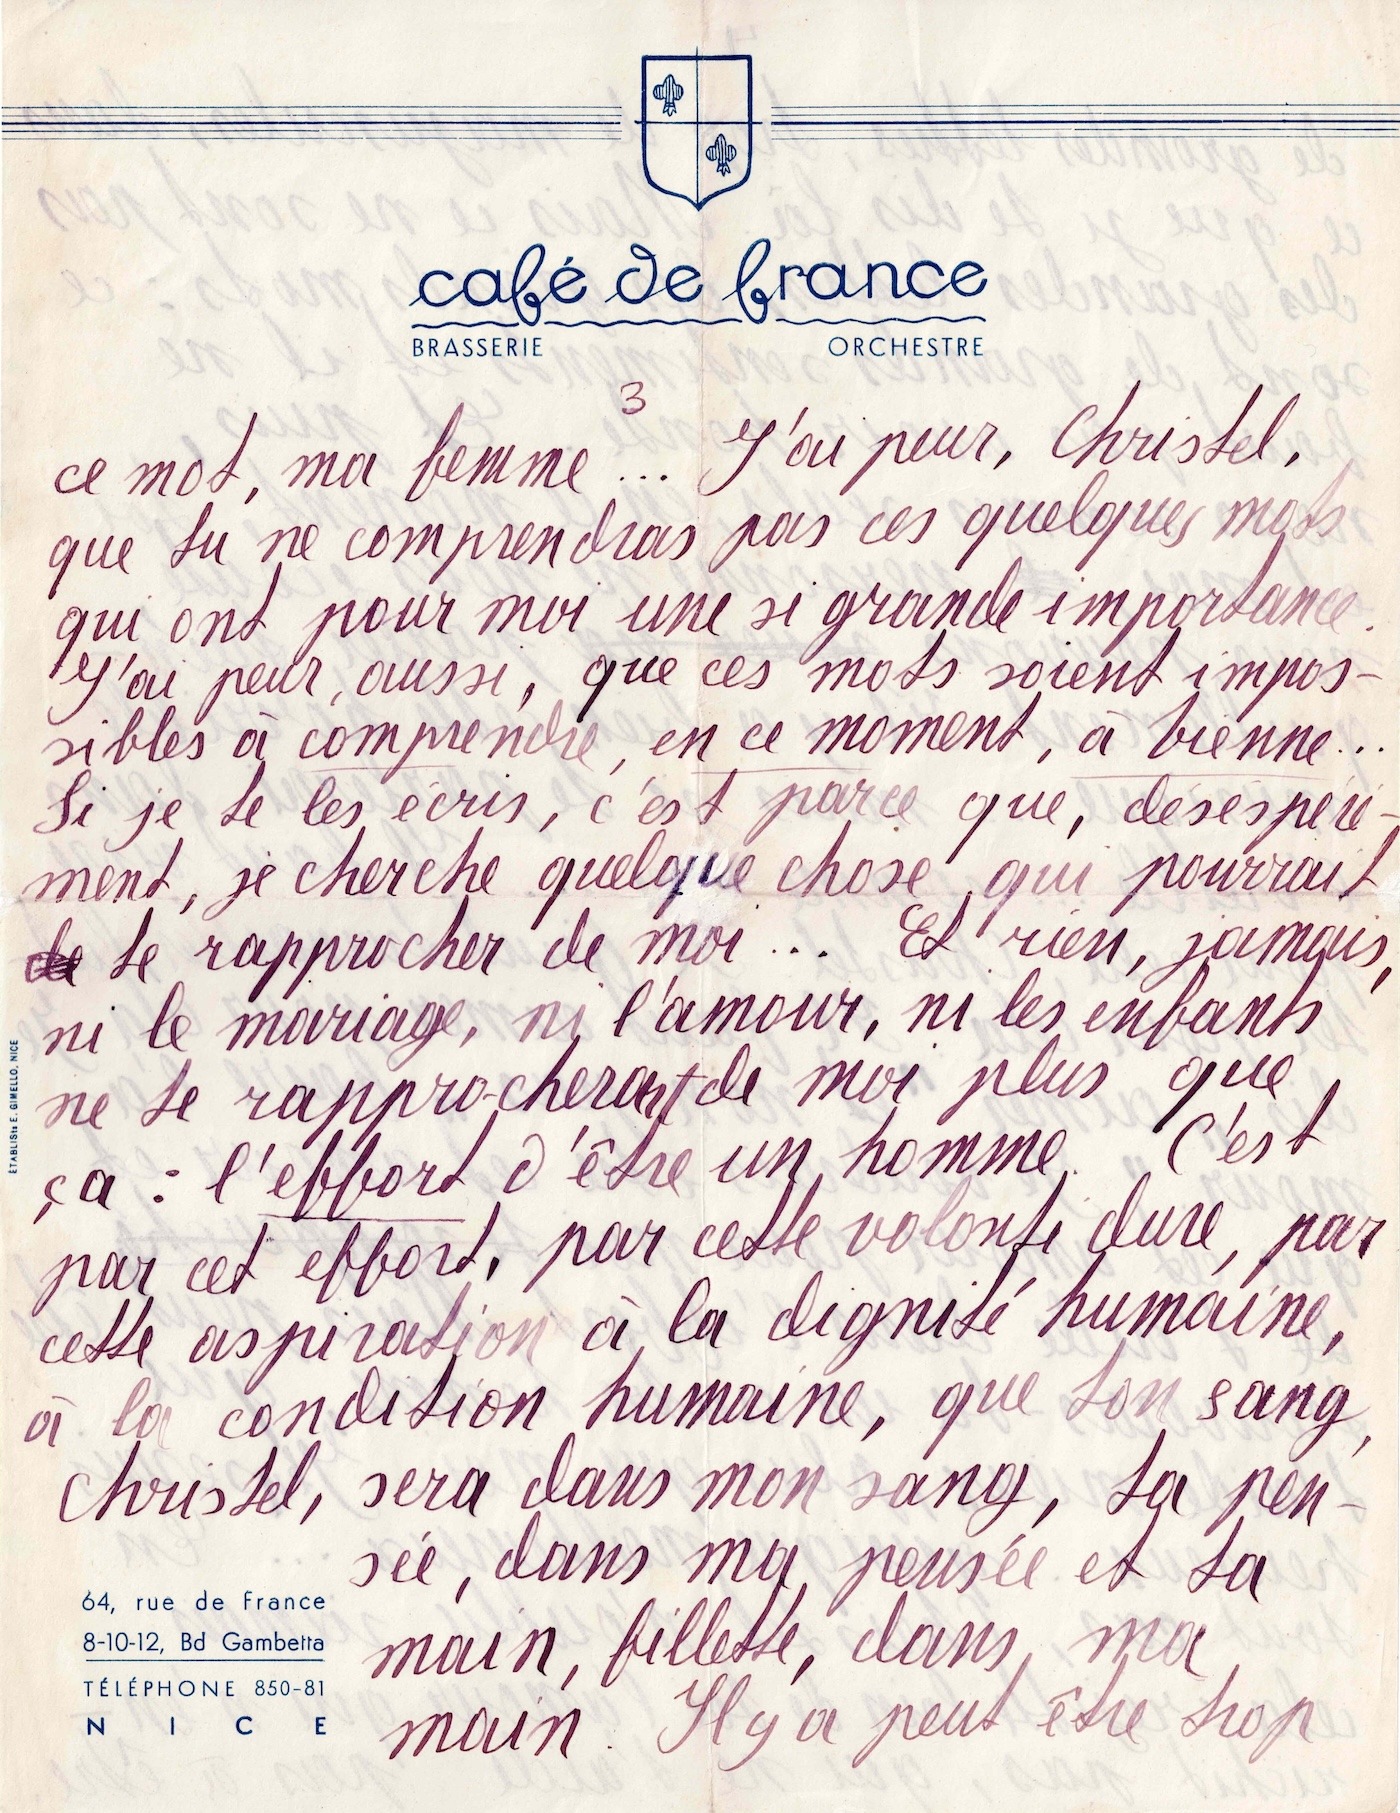 café de france
BRASSERIE ORCHESTRE
3
ce mot, ma femme... J'ai peur, Christel,
que tu ne comprendras pas ces quelques mots
qui ont pour moi une si grande importance.
J'ai peur, aussi, que ces mots soient impos-
sibles à comprendre, en ce moment, à vienne...
Si je te les écris, c'est parce que, désespéré-
ment, je cherche quelque chose qui pourrait
te rapprocher de moi... Et rien, jamais,
ni le mariage, ni l'amour, ni les enfants
ne te rapprocheront de moi plus que
ça : l'effort d'être un homme. C'est
par cet effort, par cette volonté dure, par
cette aspiration à la dignité humaine,
à la condition humaine, que ton sang,
Christel, sera dans mon sang, ta pen-
sée, dans ma pensée et ta
main, fillette, dans ma
main. Il y a peut être trop
64, rue de France
8-10-12, Bd Gambetta
TÉLÉPHONE 850-81
NICE
ETABLISts E. GIMELLO, NICE